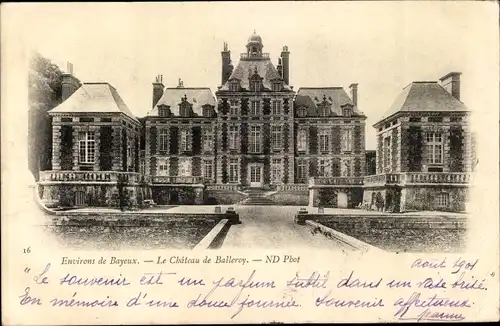 16 Environs de Bayeux. — Le Château de Balleroy. — ND Phot
Août 1901
"Le souvenir est un parfum subtil dans un vase
En mémoire d'une douce journée. Souvenir affectueux
Jeanne